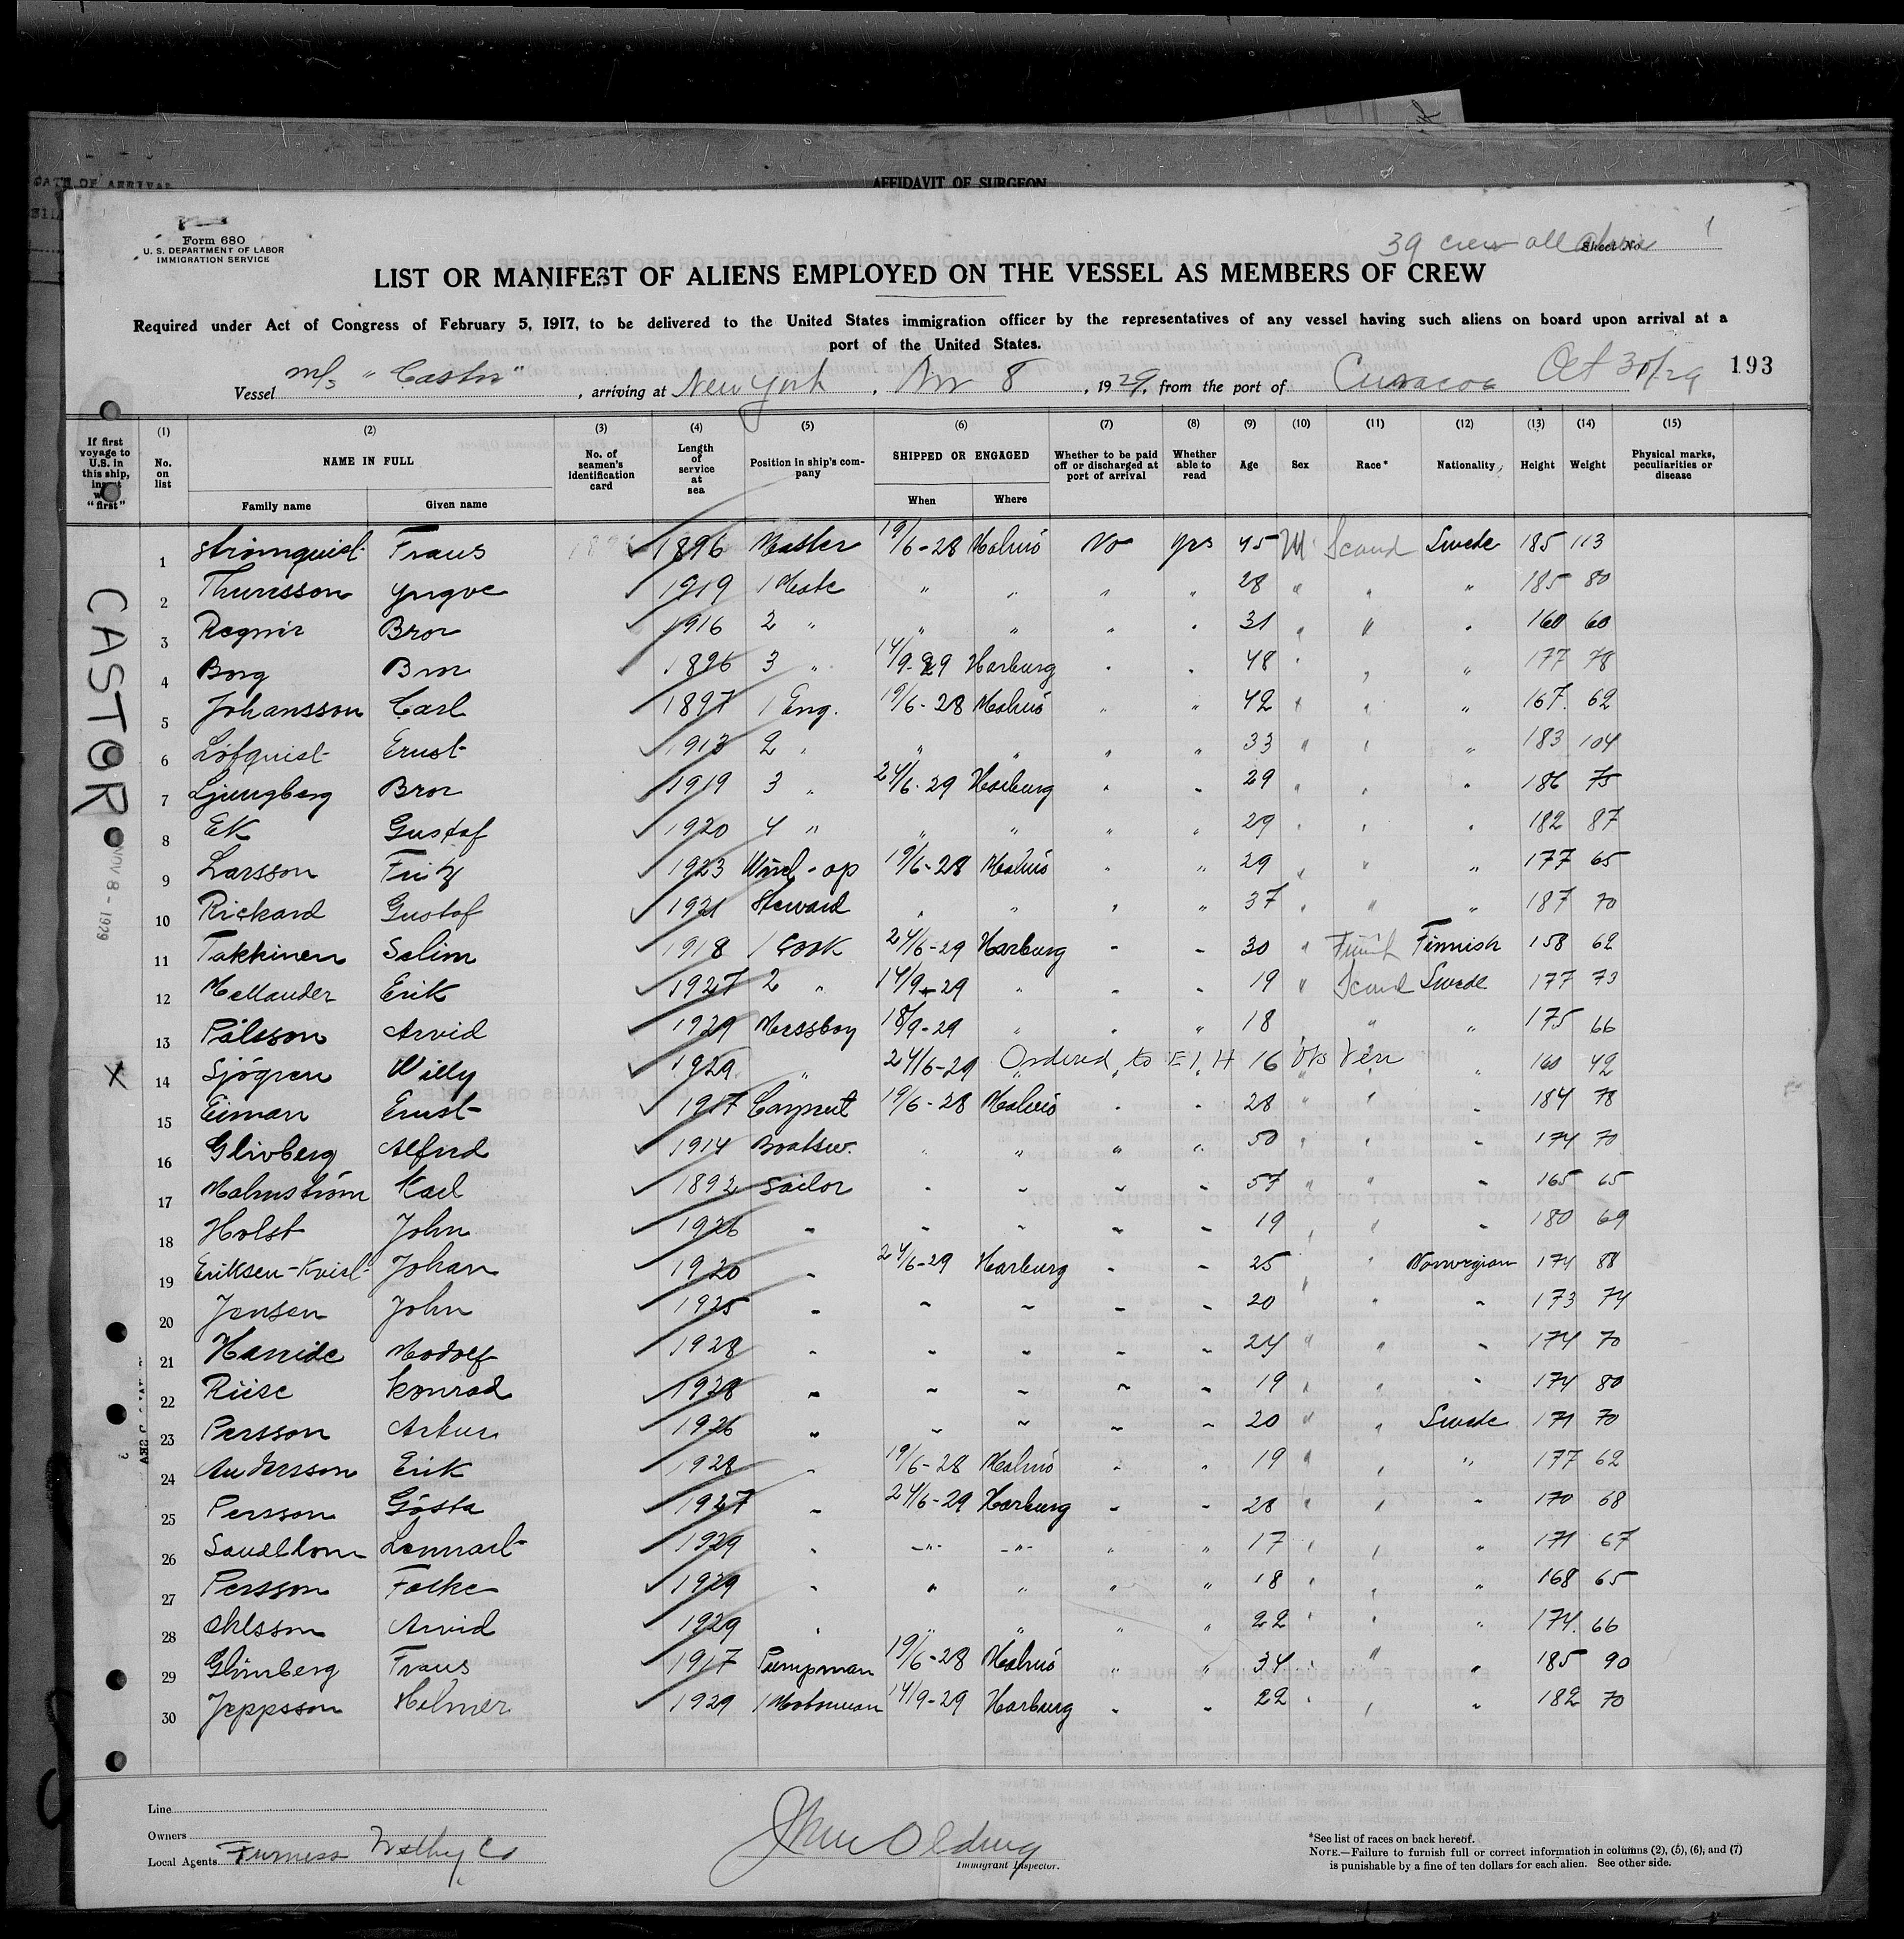 AFFIDAVIT OF SURGEON
Form 680
U. S. DEPARTMENT OF LABOR
IMMIGRATION SERVICE
39 crew all alien
Sheet No. 1
LIST OR MANIFEST OF ALIENS EMPLOYED ON THE VESSEL AS MEMBERS OF CREW
Required under Act of Congress of February 5, 1917, to be delivered to the United States immigration officer by the representatives of any vessel having such aliens on board upon arrival at a
port of the United States.
Vessel m/s "Castor", arriving at New York, Nov 8, 1929, from the port of Curacoa Oct 30/-29 193
If first voyage to U.S. in this ship, "first" (1) No. on list (2) NAME IN FULL Family name Given name (3) No. of seamen's identification card (4) Length of service at sea (5) Position in ship's company (6) SHIPPED OR ENGAGED When Where (7) Whether to be paid off or discharged at port of arrival (8) Whether able to read (9) Age (10) Sex (11) Race* (12) Nationality (13) Height (14) Weight (15) Physical marks, peculiarities or disease
1 Strömquist Frans 1896 Master 19/6-28 Malmö No yes 45 M Scand Swede 185 113
2 Thuresson Yngve 1919 1 Mate " " " " 28 " " " 185 80
3 Regnir Bror 1916 2 " " " " " 31 " " " 160 60
4 Borg Bror 1896 3 " 14/9-29 Harburg " " 48 " " " 177 78
5 Johansson Carl 1897 1 Eng. 19/6-28 Malmö " " 42 " " " 167 62
6 Löfquist Ernst 1913 2 " " " " " 33 " " " 183 104
7 Ljungberg Bror 1919 3 " 24/6-29 Harburg " " 29 " " " 186 75
8 Ek Gustaf 1920 4 " " " " " 29 " " " 182 87
9 Larsson Fritz 1923 Wirel-op 19/6-28 Malmö " " 29 " " " 177 65
10 Rickard Gustof 1921 Steward " " " " 37 " " " 187 70
11 Takkinen Selim 1918 1 Cook 24/6-29 Harburg " " 30 " Finnish Finnish 158 62
12 Mellander Erik 1927 2 " 14/9-29 " " " 19 " Scand Swede 177 73
13 Pålsson Arvid 1929 Messboy 18/9-29 " " " 18 " " 175 66
14 Sjögren Willy 1929 " 24/6-29 Ordered to E I H 16 " 160 42
15 Eiman Ernst 1917 Carpent 19/6-28 Malmö " " 28 " " " 184 78
16 Glivberg Alfred 1914 Boatsw. " " " " 50 " " " 174 70
17 Malmström Karl 1892 Sailor " " " " 57 " " " 165 65
18 Holst John 1926 " " " " " 19 " " " 180 69
19 Eriksen-Kvist Johan 1920 " 24/6-29 Harburg " " 25 " " Norwegian 174 88
20 Jensen John 1925 " " " " " 20 " " " 173 74
21 1928 " " " " " 24 " " " 174 70
22 Riise Konrad 1928 " " " " " 19 " " " 174 80
23 Persson Artur 1926 " " " " " 20 " " Swede 171 70
24 Andersson Erik 1928 " 19/6-28 Malmö " " 19 " " " 177 62
25 Persson Gösta 1927 " 24/6-29 Harburg " " 28 " " " 170 68
26 Sandblom Lennart 1929 " " " " " 17 " " " 171 67
27 Persson Folke 1929 " " " " " 18 " " " 168 65
28 Ohlsson Arvid 1929 " " " " " 22 " " " 174 66
29 Glimberg Frans 1917 Pumpman 19/6-28 Malmö " " 34 " " " 185 90
30 Jeppsson Helmer 1929 1 Motorman 14/9-29 Harburg " " 22 " " " 182 70
CASTOR
NOV 8 - 1929
Line
Owners
Local Agents Furness Withy Co
Immigrant Inspector.
*See list of races on back hereof.
NOTE.—Failure to furnish full or correct information in columns (2), (5), (6), and (7)
is punishable by a fine of ten dollars for each alien. See other side.